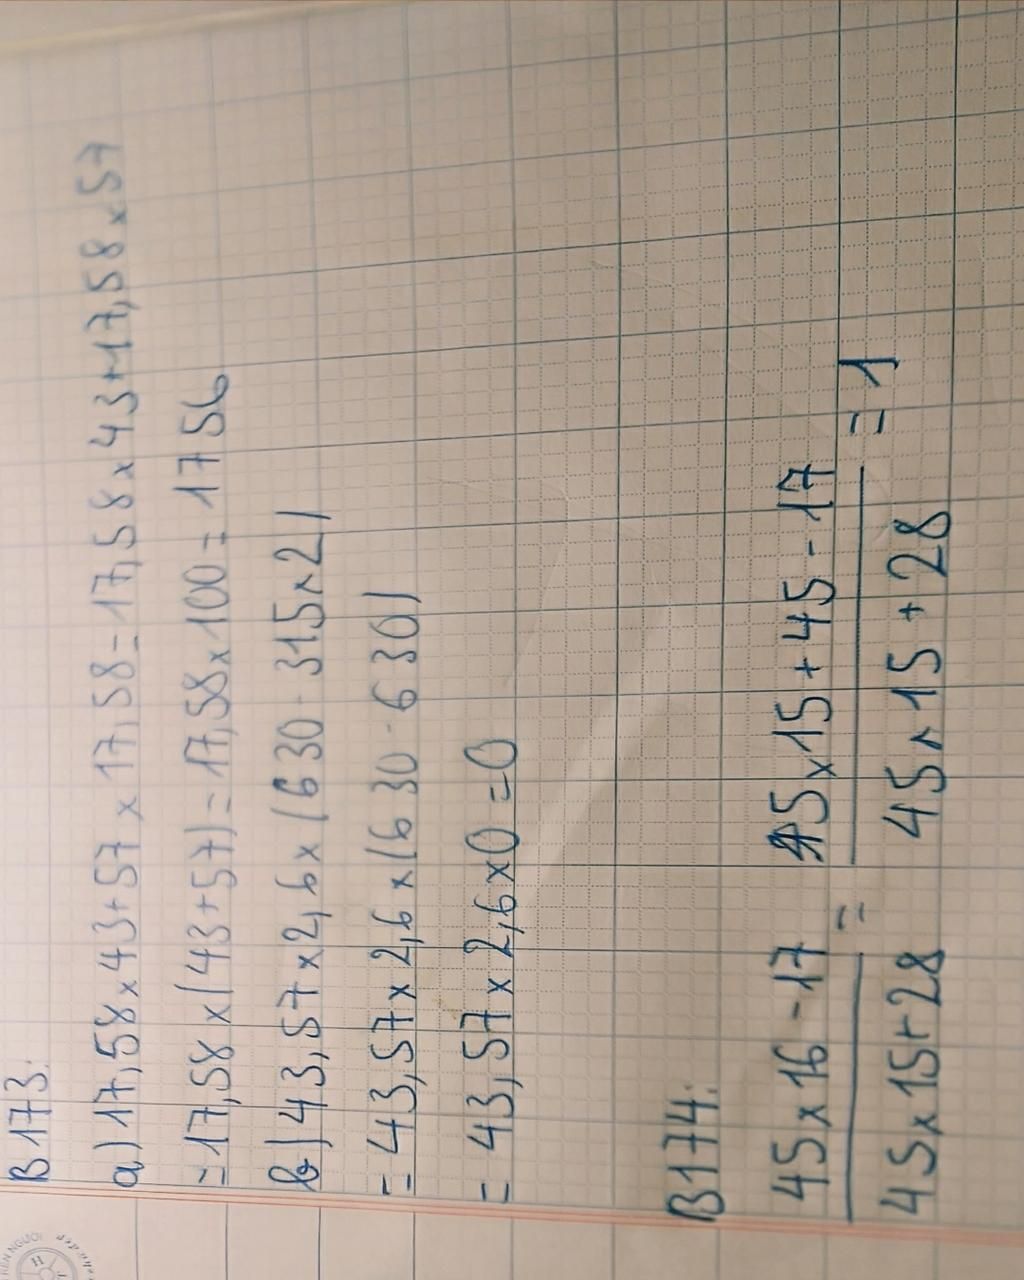 B173.
a) 17,58 x 43 + 57 x 17,58 = 17,58 x 43 + 17,58 x 57
= 17,58 x (43 + 57) = 17,58 x 100 = 1756
b) 43,57 x 2,6 x (630 - 315 x 2)
= 43,57 x 2,6 x (630 - 630)
= 43,57 x 2,6 x 0 = 0
B174.
45 x 16 - 17 / 45 x 15 + 28 = 45 x 15 + 45 - 17 / 45 x 15 + 28 = 1